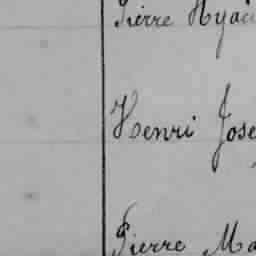 Pierre Hyaci
Henri Jose
Pierre Ma